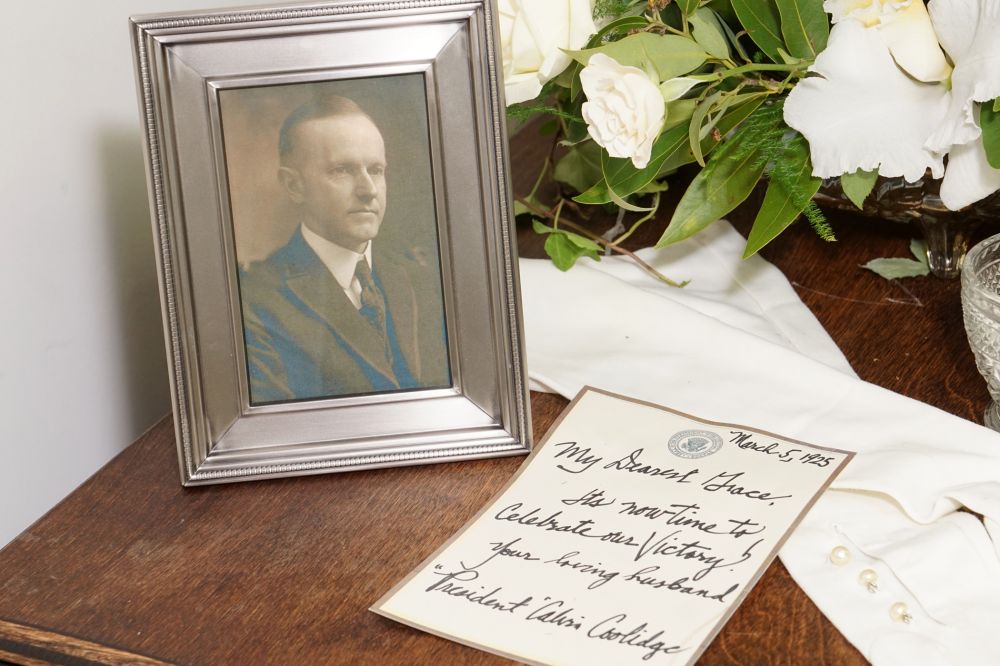 March 5, 1925
My Dearest Grace,
Its now time to
Celebrate our Victory!
Your loving husband
"President" Calvin Coolidge